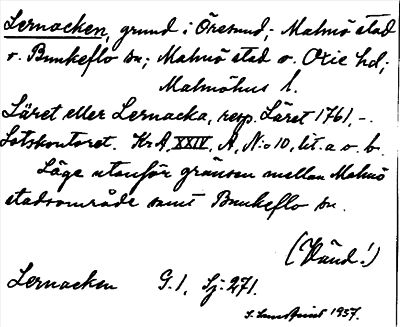 Lernacken, grund i Öresund; Malmö stad
o. Bunkeflo sn; Malmö stad o. Oxie hd;
Malmöhus l.
Läret eller Lernacka, resp. Läret 1761, -.
Lotskontoret. KrA, XXIV, A, N:o 10, lit. a o. b.
Läge utanför gränsen mellan Malmö
stadsområde samt Bunkeflo sn.
(Vänd!)
Lernacken G.1, Sj: 271.
S. 1957.